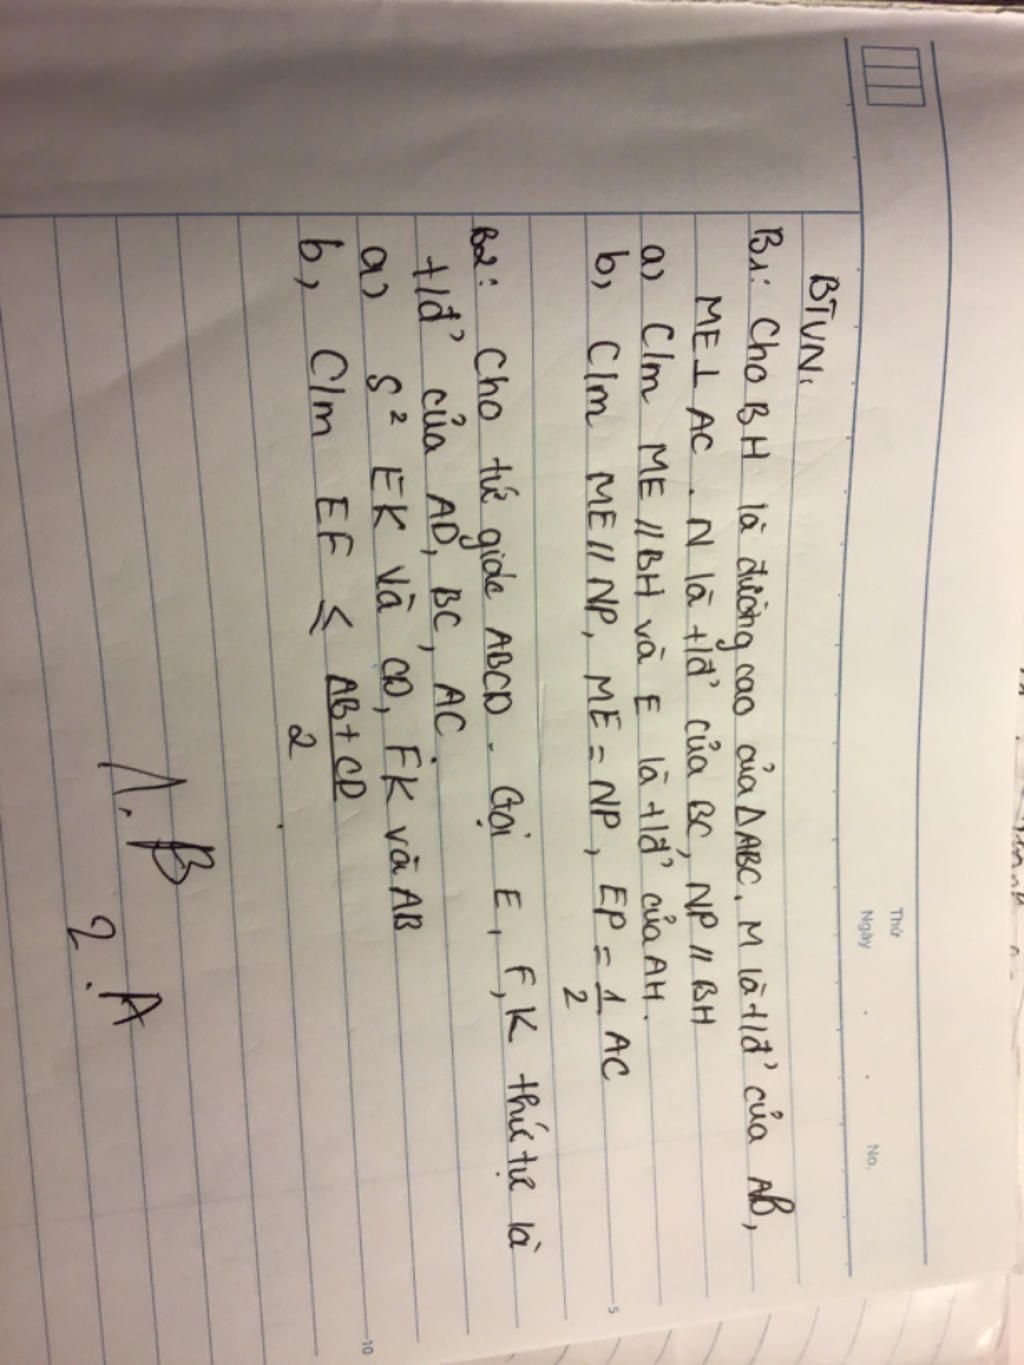 Thứ
Ngày . . No.
BTVN:
B1: Cho BH là đường cao của ΔABC, M là t/đ' của AB,
ME ⊥ AC. N là t/đ' của BC, NP // BH
a) C/m ME // BH và E là t/đ' của AH.
b) C/m ME // NP, ME = NP, EP = 1/2 AC
5
B2: Cho tứ giác ABCD. Gọi E, F, K thứ tự là
t/đ' của AD, BC, AC.
a) S² EK và CD, FK và AB
b) C/m EF ≤ AB+CD/2
10
1. B
2. A